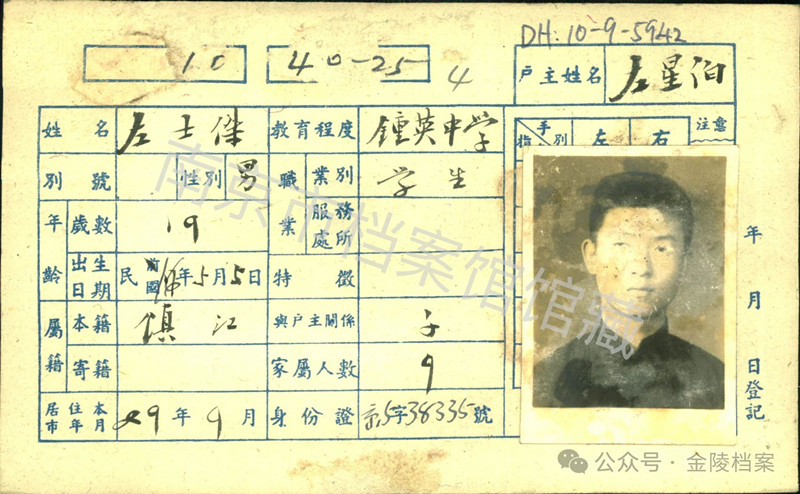 DH: 10-9-5942
10 40-25 4
戶主姓名 左星泊
姓名 左士傑 教育程度 鍾英中学
指 手別 左 右 注意
別號 性別 男 職業 業別 学生
年齡 歲數 19 服務處所
出生日期 民 前 國 年5月5日 特徵
屬籍 本籍 鎮江 與戶主關係 子
寄籍 家屬人數 9
居住本市年月 29年9月 身份證 京5字38335號
年月日登記
南京市档案馆馆藏
公众号·金陵档案